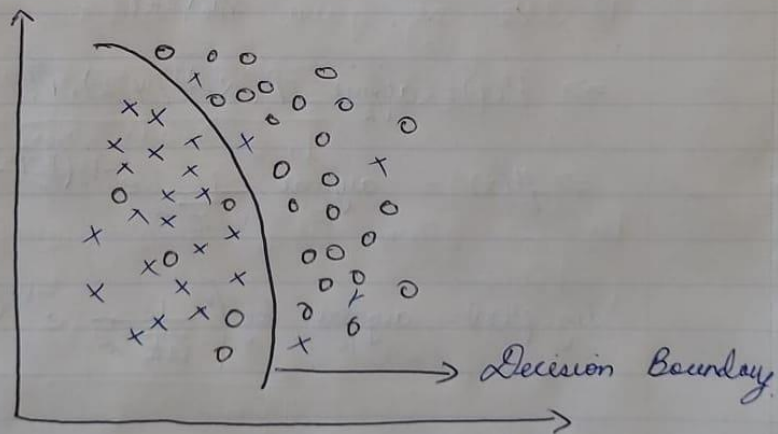 Decision Boundary.